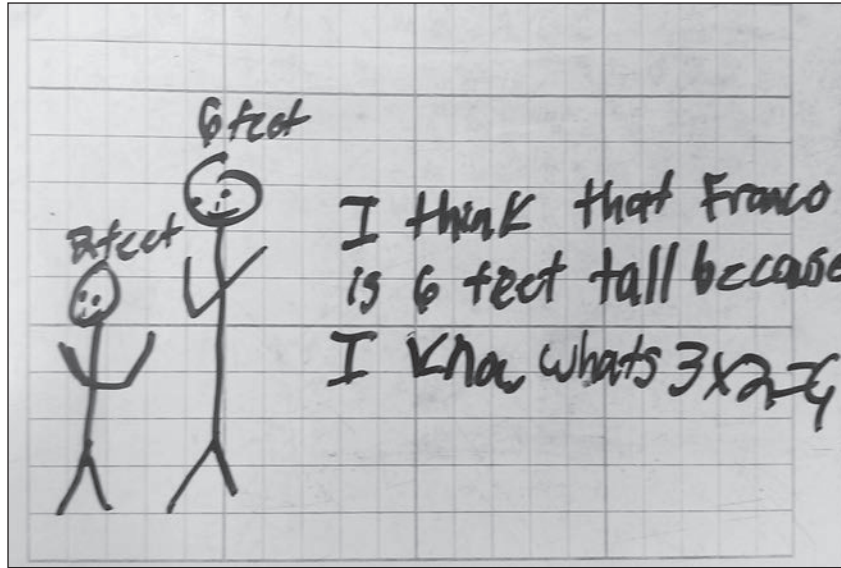 6 feet
2 feet
I think that Franco
is 6 feet tall because
I know whats 3x2=6